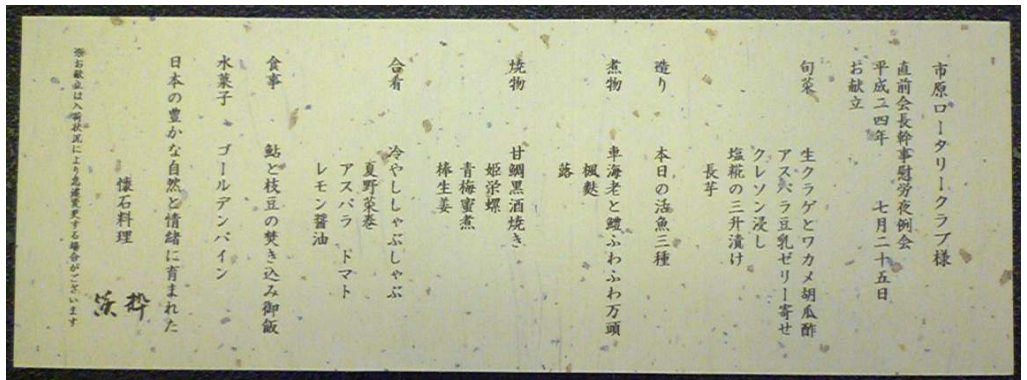 市原ロータリークラブ様
直前会長幹事慰労夜例会
平成二四年 七月二十五日
お献立
旬菜 生クラゲとワカメ胡瓜酢
アスペラ豆乳ゼリー寄せ
クレソン浸し
塩糀の三升漬け
長芋
造り 本日の活魚三種
煮物 車海老と鱧ふわふわ万頭
楓麩
蕗
焼物 甘鯛黒酒焼き
姫栄螺
青梅蜜煮
棒生姜
合肴 冷やししゃぶしゃぶ
夏野菜巻
アスパラ トマト
レモン醤油
食事 鮎と枝豆の焚き込み御飯
水菓子 ゴールデンパイン
日本の豊かな自然と情緒に育まれた
懐石料理
※お献立は入荷状況により急遽変更する場合がございます